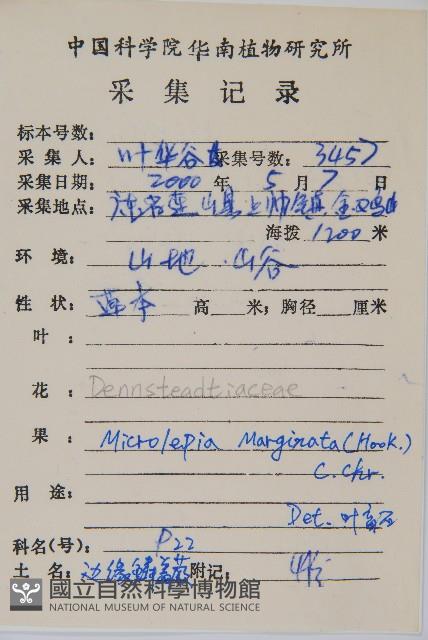 中国科学院华南植物研究所
采集记录
标本号数：
采集人：叶华谷 采集号数：3457
采集日期：2000年5月7日
采集地点：连山县上帅镇
海拨1200米
环境：山地．山谷
性状：草本 高 米；胸径 厘米
叶：
花：Dennstaedtiaceae
果：Microlepia Marginata (Hook.)
C.Chr.
用途：
Det. 叶
科名(号)：P22
土名：边缘鳞盖蕨 附记：
國立自然科學博物館
NATIONAL MUSEUM OF NATURAL SCIENCE